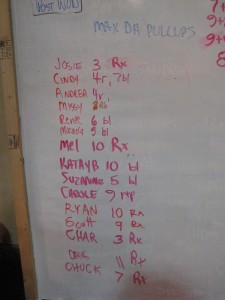 POST WOD
MAX DA PULLUPS
7+
9+
9+
8
JOSIE 3 Rx
CINDY 4r, 7bl
ANDREA 4r,
MISSY
RENE 6 bl
5 bl
MEL 10 Rx
KATAYB 10 bl
SUZANNE 5 bl
CAROLE 9
RYAN 10 Rx
SCOTT 9 Rx
CHAR 3 Rx
11 Rx
CHUCK 7 Rx